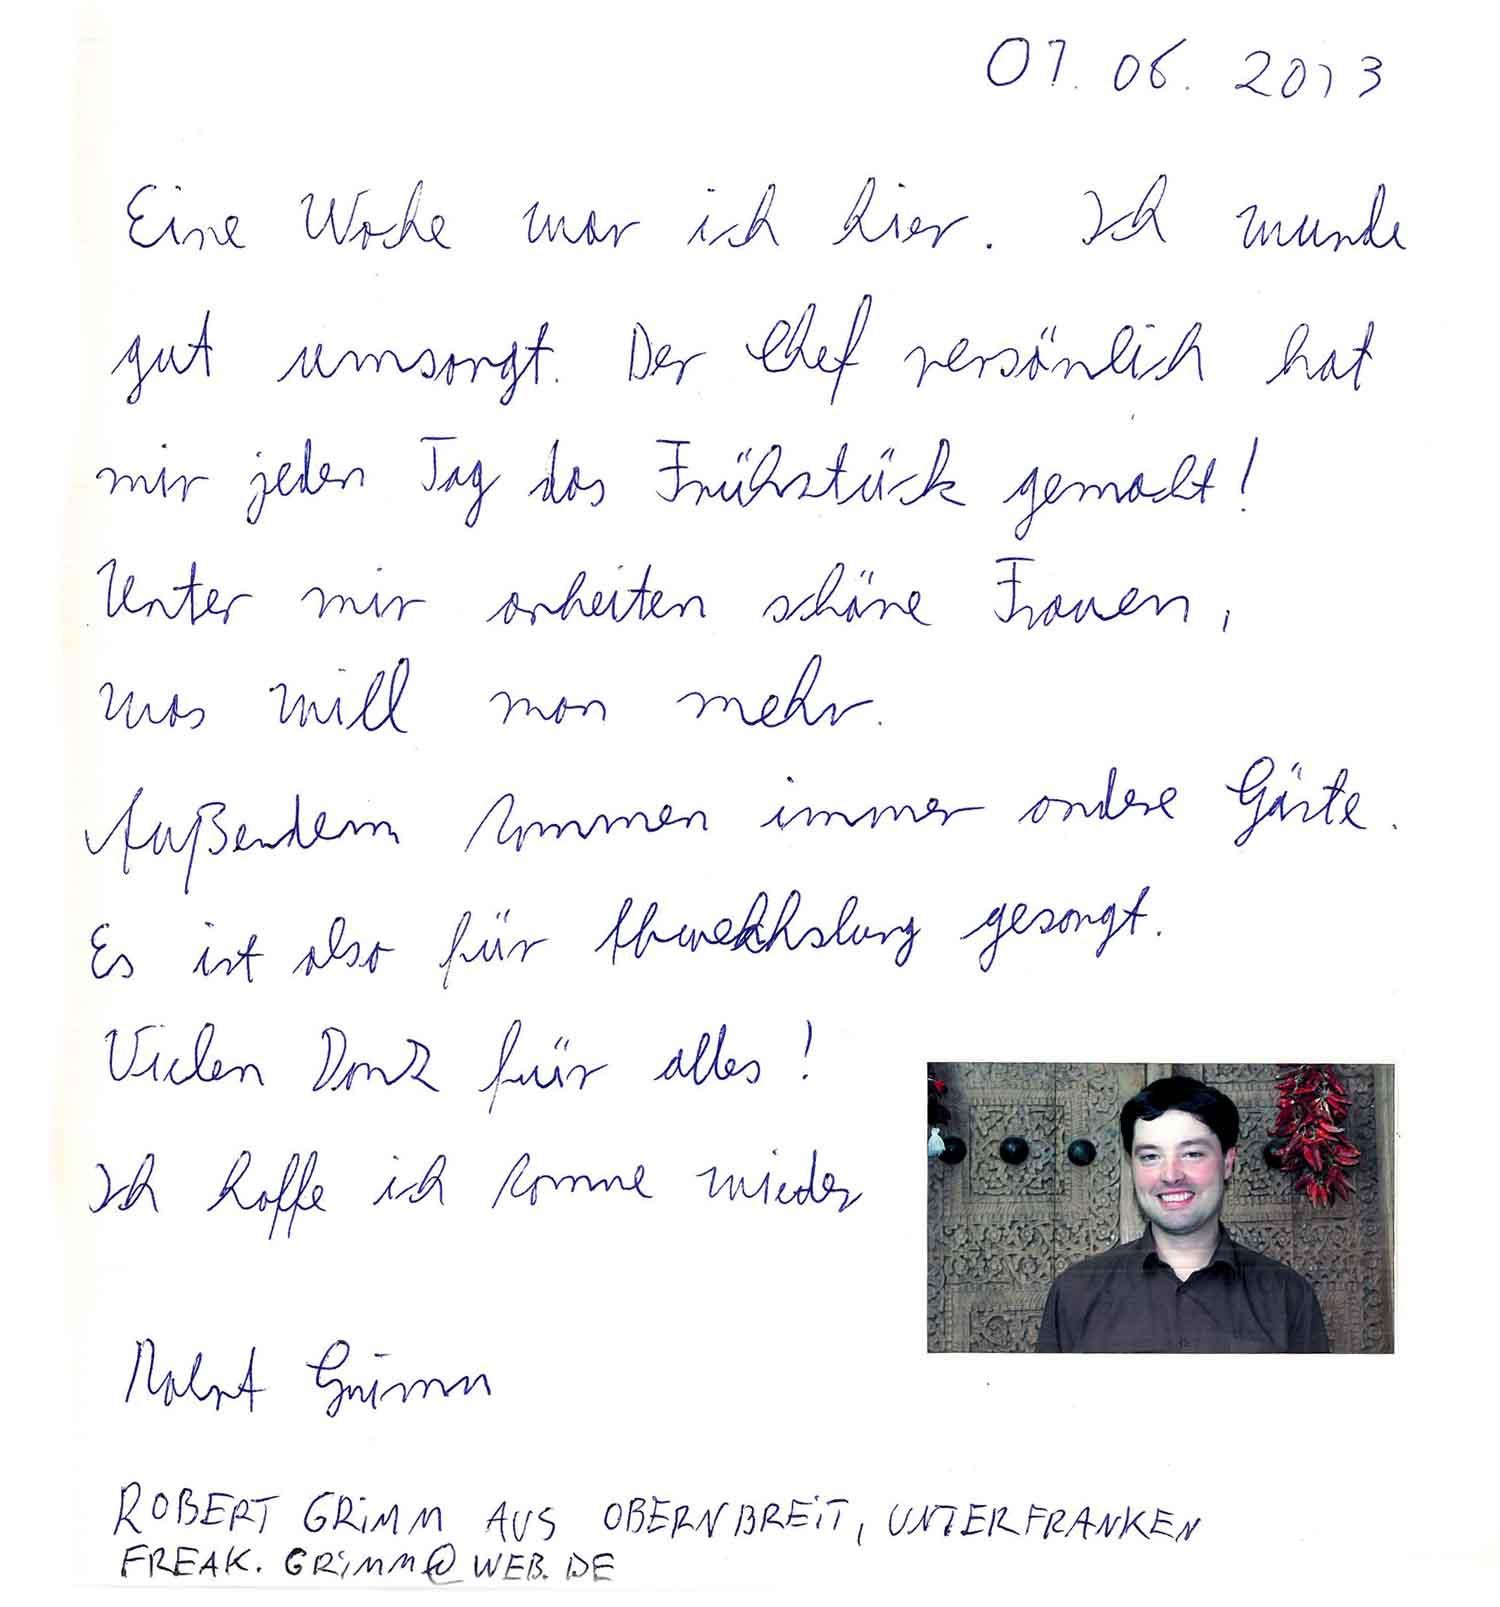 07. 06. 2013
Eine Woche war ich hier. Ich wurde
gut umsorgt. Der Chef persönlich hat
mir jeden Tag das Frühstück gemacht!
Unter mir arbeiten schöne Frauen,
was will man mehr.
Außerdem kommen immer andere Gäste.
Es ist also für Abwechslung gesorgt.
Vielen Dank für alles!
Ich hoffe ich komme wieder
Robert Grimm
ROBERT GRIMM AUS OBERNBREIT, UNTERFRANKEN
FREAK.GRIMM@WEB.DE